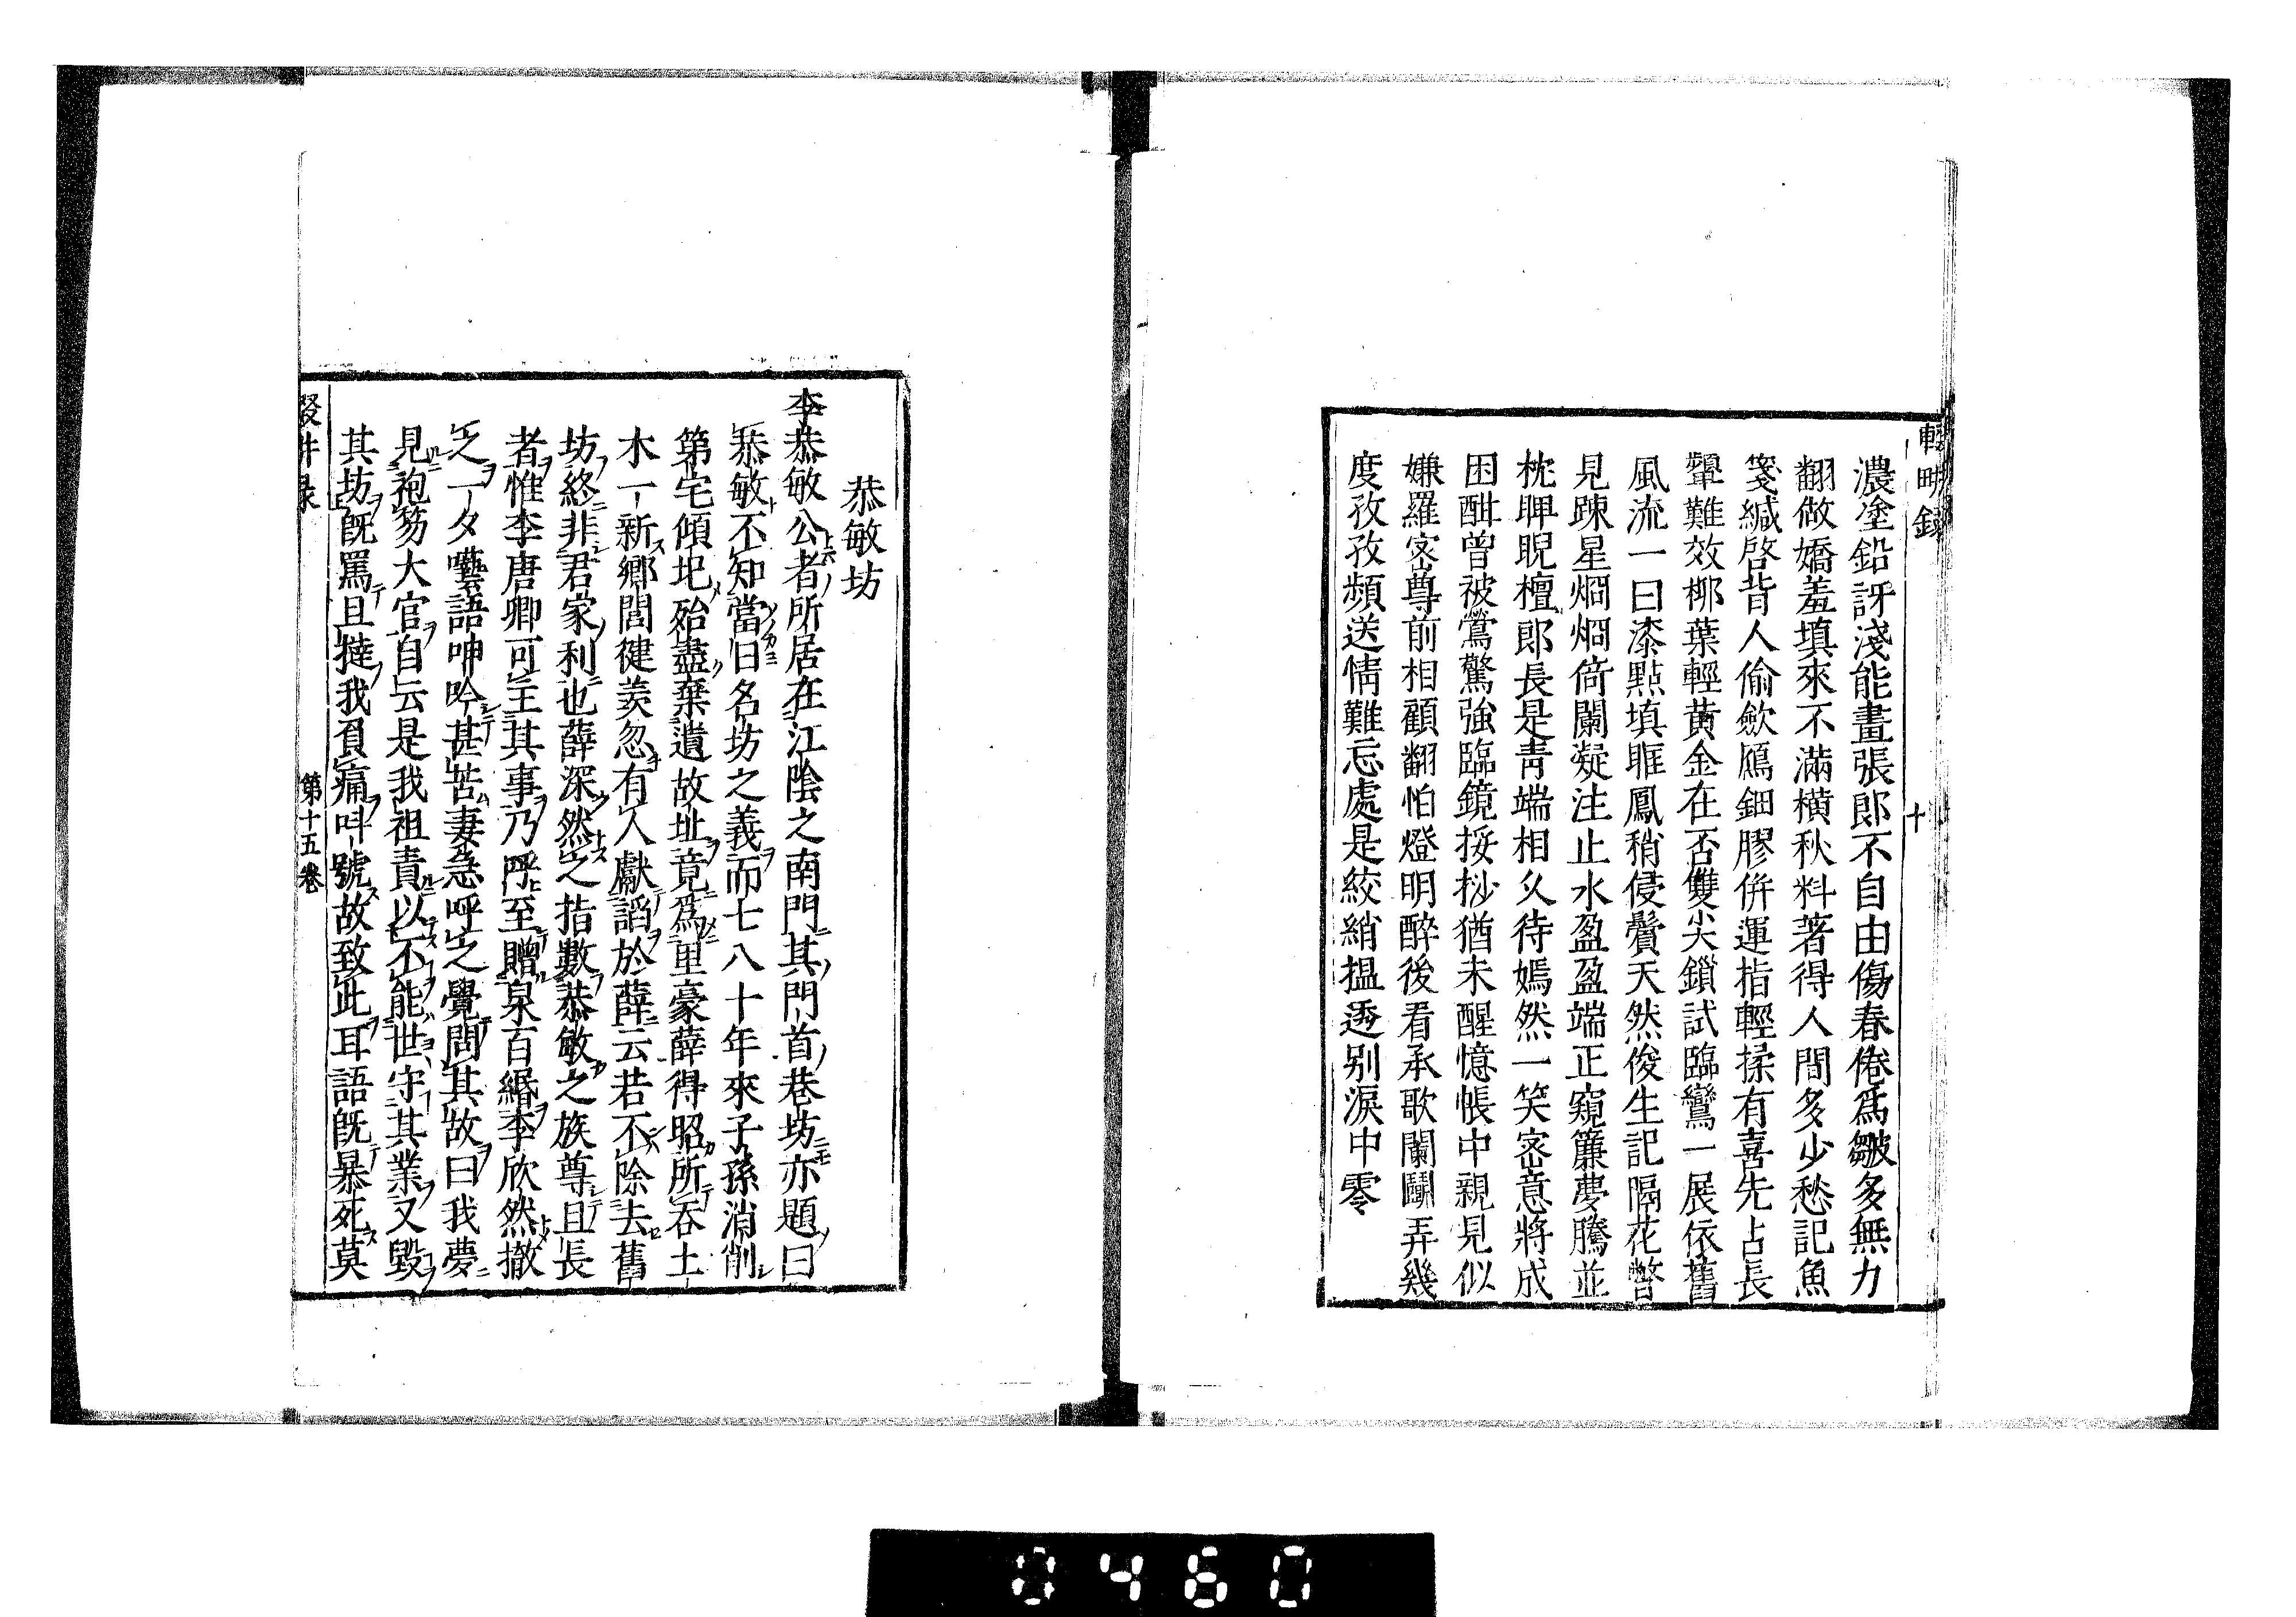 輟畊錄
十
濃塗鉛訝淺能畫張郎不自由傷春倦為皺多無力
翻做嬌羞填來不滿橫秋料著得人間多少愁記魚
箋緘啓背人偷斂鴈鈿膠併運指輕揉有喜先占長
顰難效柳葉輕黃金在否雙尖鎖試臨鸞一展依舊
風流一曰漆點填眶鳳稍侵鬢天然俊生記隔花瞥
見踈星烱烱倚闌凝注止水盈盈端正窺簾夢騰並
枕睥睨檀郎長是青端相久待嫣然一笑宻意將成
困酣曾被鶯驚強臨鏡挼抄猶未醒憶帳中親見似
嫌羅宻尊前相顧翻怕燈明醉後看承歌闌鬭弄幾
度孜孜頻送情難忘處是絞綃搵透别淚中零
恭敏坊
李恭敏公者所居在江陰之南門其門首巷坊亦題曰
恭敏不知當日名坊之義而七八十年來子孫淌削
第宅傾圮殆盡棄遺故址竟為里豪薛得昭所呑土
木一新鄉閭健羨忽有人獻謟於薛云若不除去舊
坊終非君家利也薛深然之指數恭敏之族尊且長
者惟李唐卿可主其事乃呼至贈泉百緡李欣然撤
之一夕囈語呻吟甚苦妻急呼之覺問其故曰我夢
見袍笏大官自云是我祖責以不能世守其業又毀
其坊旣罵且撻我負痛叫號故致此耳語旣暴死莫
輟畊录
第十五卷
0460